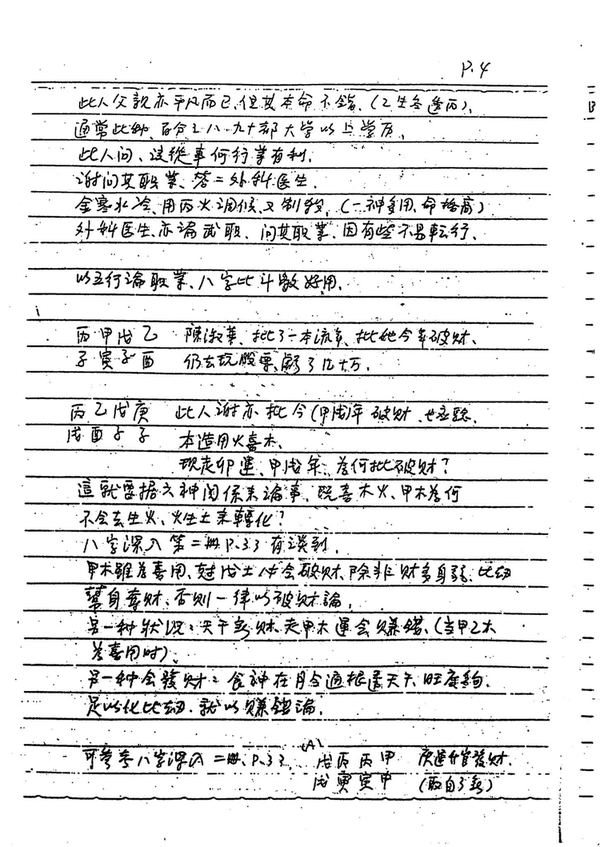 P.4
此人父親亦平凡而已,但其本命不錯,(乙生冬透丙),
通常此種,百分之八、九十都大學以上學歷,
此人问,該從事何行業有利,
謝问其職業,答=外科医生
金寒水冷,用丙火調候,又制殺,(一神多用,命格高)
外科医生亦論武职,问其职業,因有些不易転行,
以五行論職業,八字比斗數好用,
丙甲戊乙 陳淑華,批了一本流年,批她今年破財,
子寅子酉 仍去玩股票,虧了几十万,
丙乙戊庚 此人謝亦批今(甲戌)年破財,也
戌酉子子 本造用火喜木,
現走卯運,甲戌年,為何批破財?
這就要据六神関係来論事,既喜木火,甲木為何
不会去生火,火生土来轉化?
八字深入第二冊P.33有談到,
甲木雖為喜用,尅戊土也会破財,除非財多身弱,比劫
幫身奪財,否則一律以破財論,
另一種狀況:天干为財,走甲木運会賺錢,(当甲乙木
為喜用時),
另一種会發財:食神在月令通根透天干,旺度夠,
足以化比劫,就以賺錢論,
可参考八字深入二冊,P.33 (A) 戊丙丙甲
戊寅寅申